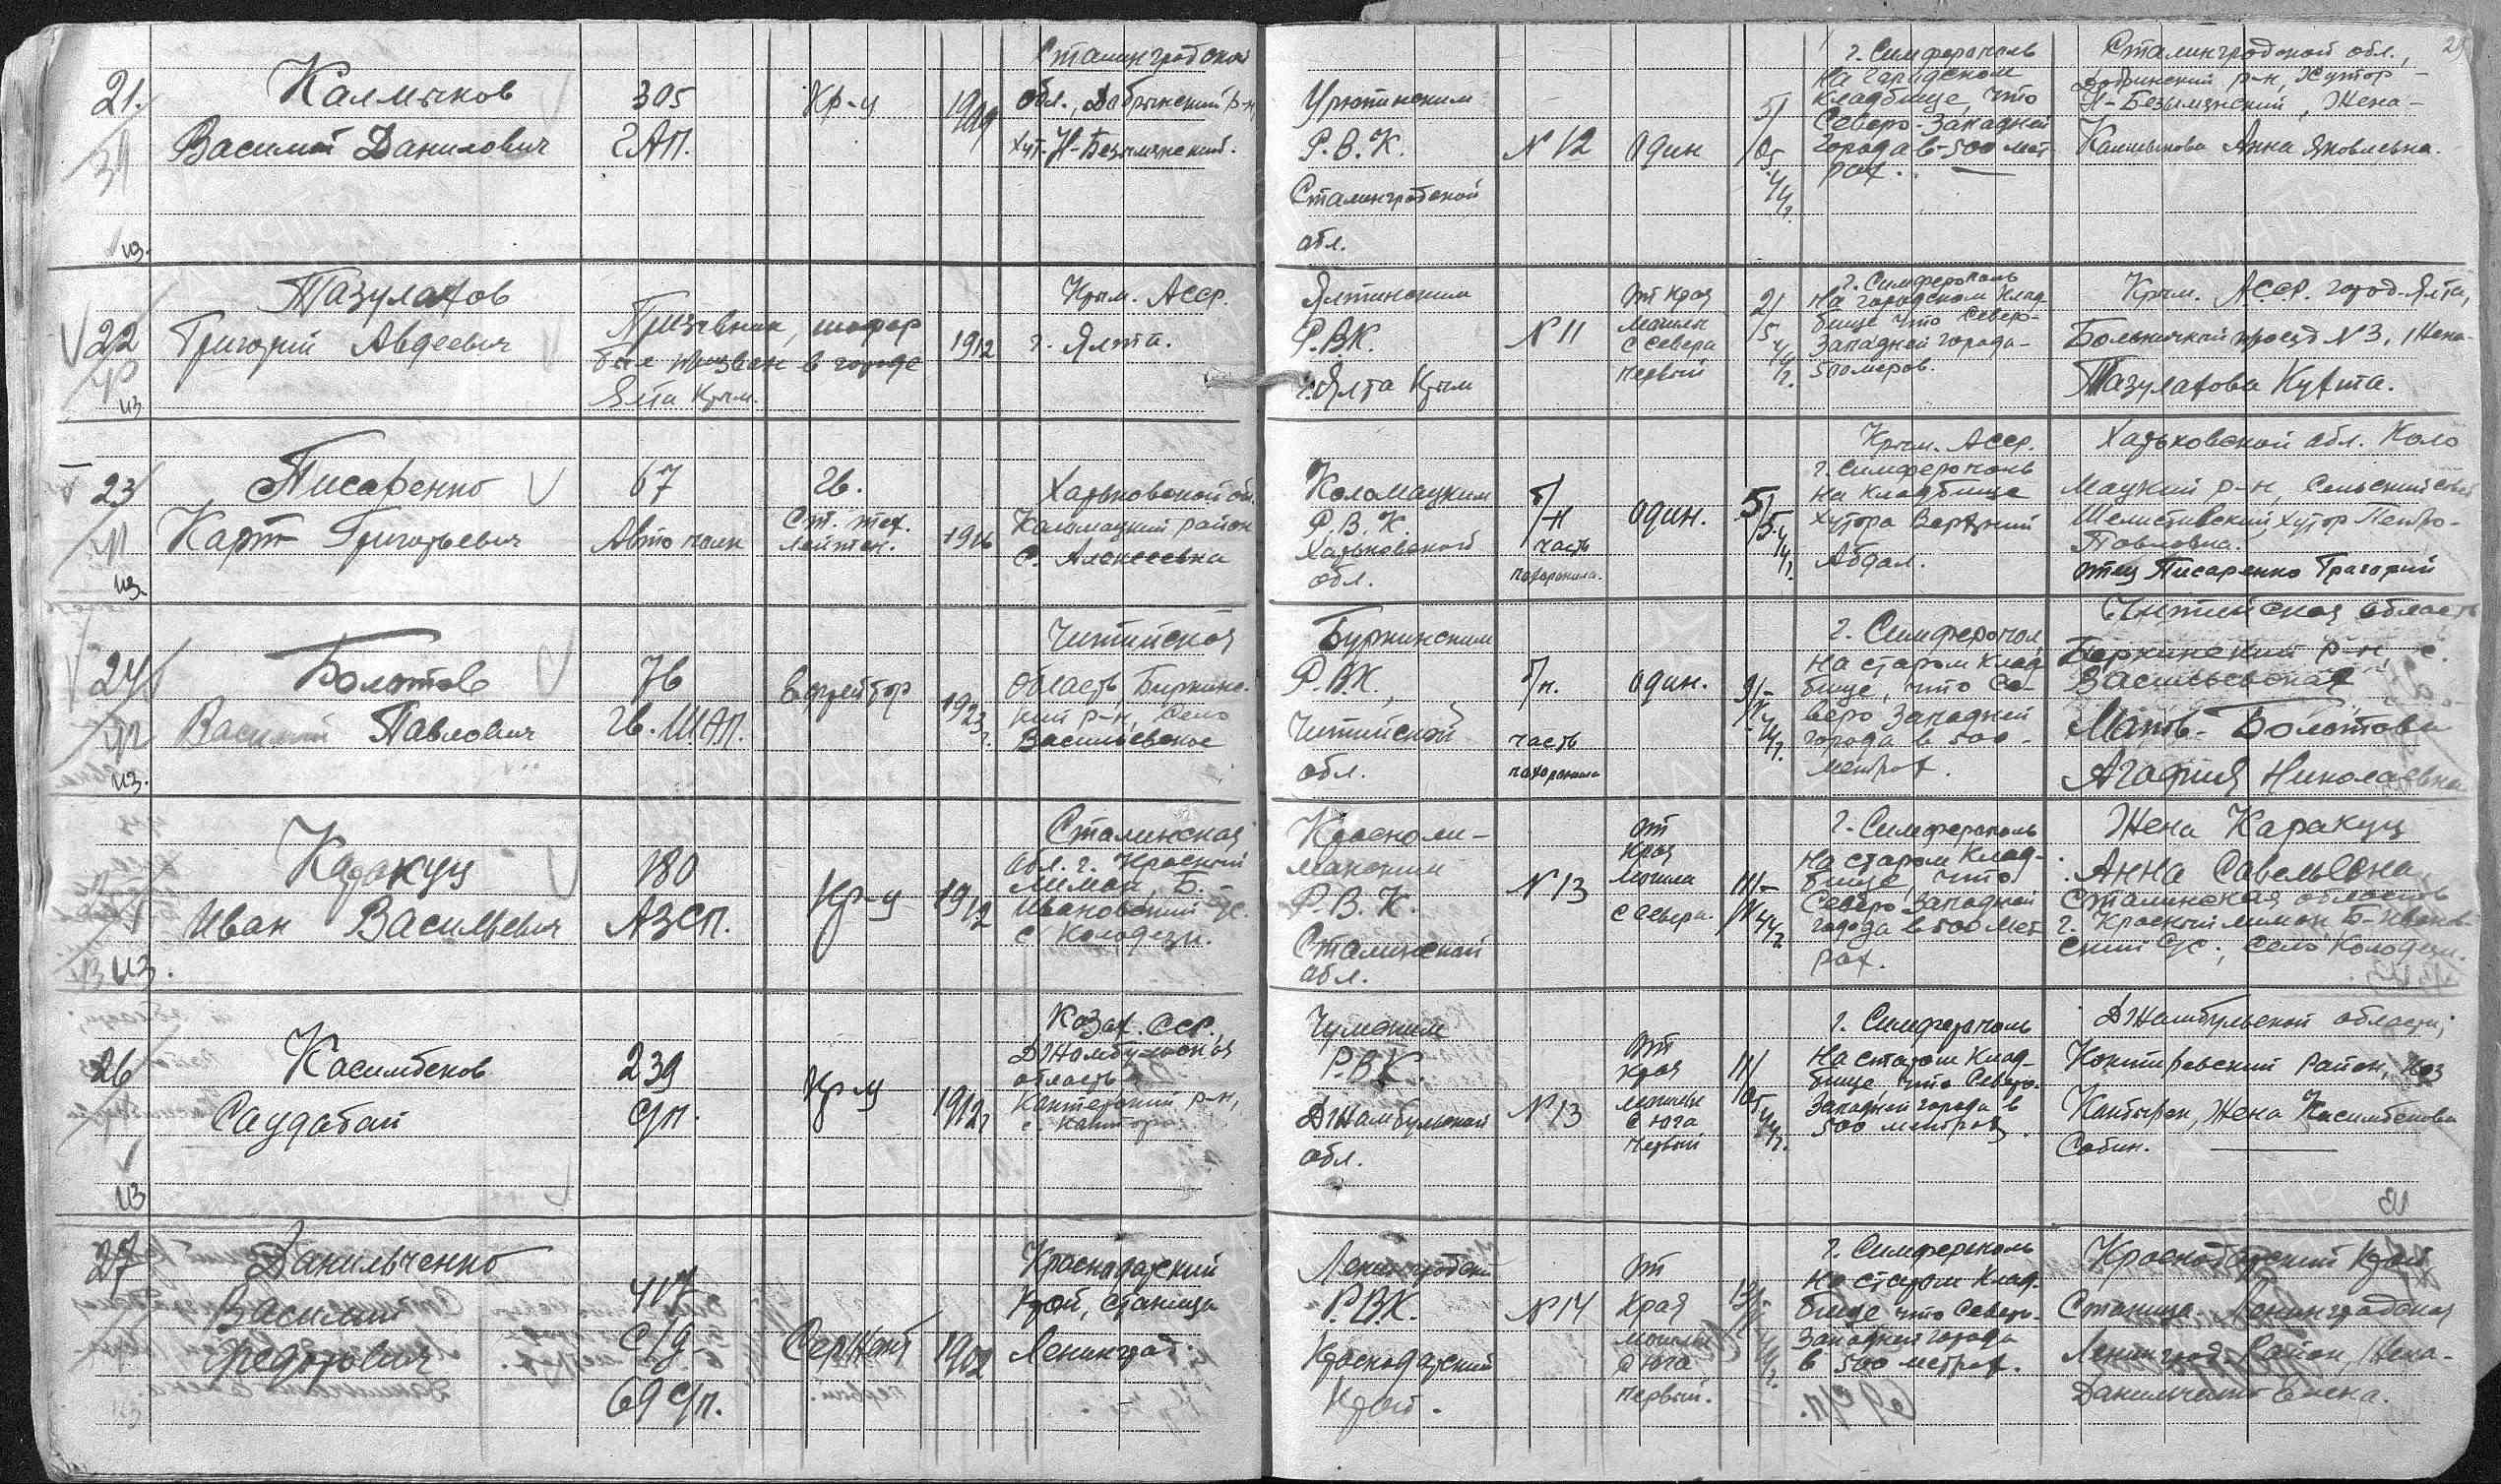 29
21.
Калмыков
Василий Данилович
305
ГАП.
Кр-ц
1909
Сталинградской
обл., Добрынский р-н,
хут. Н-Безымянский.
Урюпинским
Р.В.К.
Сталинградской
обл.
№ 12
один
5/
05
44
г.
г. Симферополь
на городском
кладбище, что
Северо-Западней
города в 500 мет
рах.
Сталинградской обл.,
Добринский р-н, Хутор
Н-Безымянский, Жена-
Калмыкова Анна Яковлевна.
из.
22
Тазулахов
Григорий Авдеевич
Призывник, шофер
был призван в городе
Ялта Крым.
1912
Крым. АССР.
г. Ялта.
Ялтинским
Р.В.К.
г. Ялта Крым
№ 11
от края
могилы
с севера
первый
2/
5
44
г.
г. Симферополь
на городском клад-
бище что Северо-
Западней города-
500 меров.
Крым. АССР. город Ялта,
Больничный проезд № 3, Жена-
Тазулахова
из
23
41
Писаренко
Карп Григорьевич
67
Авто полк
Гв.
Ст. тех.
лейтен.
1916
Харьковской об.
Коломацкий район
с. Алексеевка
Коломацким
Р.В.К.
Харьковской
обл.
б/н
часть
похоронила.
один.
5/
5
44
г.
Крым. АССР.
г. Симферополь
на кладбище
хутора Верхний
Абдал.
Харьковской обл. Коло
мацкий р-н, Сельский совет
Шелестовский, хутор Петро-
Павловка.
отец Писаренко Григорий
из.
24
42
Болотов
Василий Павлович
76
гв. ШАП.
Ефрейтор
1923
г.
Читинская
область, Биркинс-
кий р-н, село
Васильевское
Буркинским
Р.В.К.,
Читинской
обл.
б/н.
часть
похоронила
один.
9/
44
г.
г. Симферопол
на старом клад-
бище, что Се-
веро Западней
города в 500-
метрах.
Читинская область
Биркинский р-н, с.
Васильевская
Мать-Болотова
Агафия Николаевна
из.
Каракуц
Иван Васильевич
180
АЗСП.
Кр-ц
1912
Сталинская
обл. г. Красный
Лиман, Б.-
Ивановский с/с.
с. Колодези.
Красноли-
манским
Р.В.К.
Сталинской
обл.
№ 13
от
края
могилы
с севера.
11/
44
г.
г. Симферополь
на старом клад-
бище, что
Северо Западней
города в 500 мет
рах.
Жена Каракуц
Анна Савельевна
Сталинская область
г. Красный лиман, Б-Иванов
ский с/с, село Колодези.
из.
26
Касимбеков
Саудабай
239
с/п.
Кр-ц
1912
г
Казах. ССР.,
Джамбульская
область
р-н,
Чумским
Р.В.К.
Джамбульской
обл.
№ 13
от
края
могилы
с юга
первый
11/
05
44
г.
г. Симферополь
на старом клад-
бище что Северо-
Западней города в
500 метрах
Джамбульской области,
район,
Жена Касимбекова
Сабин.
из
27
Данильченко
Василий
Федорович
417
с/д-
69 с/п.
Сержант
1902
Краснодарский
край, станица
Ленинград.
Ленинградски
Р.В.К.
Краснодарский
Край.
№ 14
от
края
могилы
с юга
первый.
13/
44
г.
г. Симферополь
на старом клад-
бище что Северо-
Западней города
в 500 метрах.
Краснодарский край
Станица Ленинградская
Ленинград. Район, Жена-
Данильченко Елена.